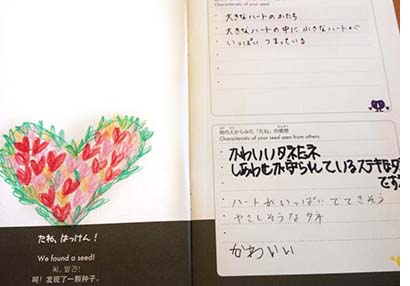 たね、はっけん！
We found a seed!
씨, 발견!
呵！发现了一颗种子。
Characteristic of your seed
大きなハートのかたち
大きなハートの中に小さなハートが
いっぱいつまっている
他の人からみた「たね」の感想
Characteristic of your seed seen from others
かわいいタネだネ
しあわせが守られているステキなタネ
です
ハートがいっぱいでてきそう
やさしそうなタネ
かわいい